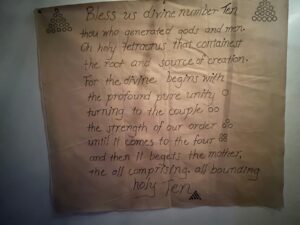 Bless us divine number Ten
thou who generated gods and men.
Oh holy tetractus that containest
the root and source of creation.
For the divine begins with
the profound pure unity
turning to the couple
the strength of our order
until it comes to the four
and then it begets the mother,
the all comprising, all bounding
holy Ten